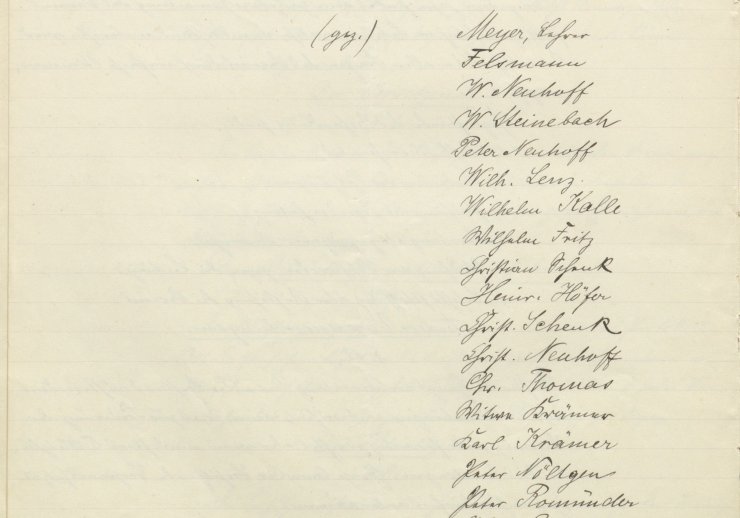 (gez.) Meyer, Lehrer
Felsmann
W. Neuhoff
W. Steinebach
Peter Neuhoff
Wilh. Lenz.
Wilhelm Kalle
Wilhelm Fritz
Christian Schenk
Heinr. Höfer
Christ. Schenk
Christ. Neuhoff
Chr. Thomas
Witwe Krämer
Karl Krämer
Peter Nöllgen
Peter Romünder